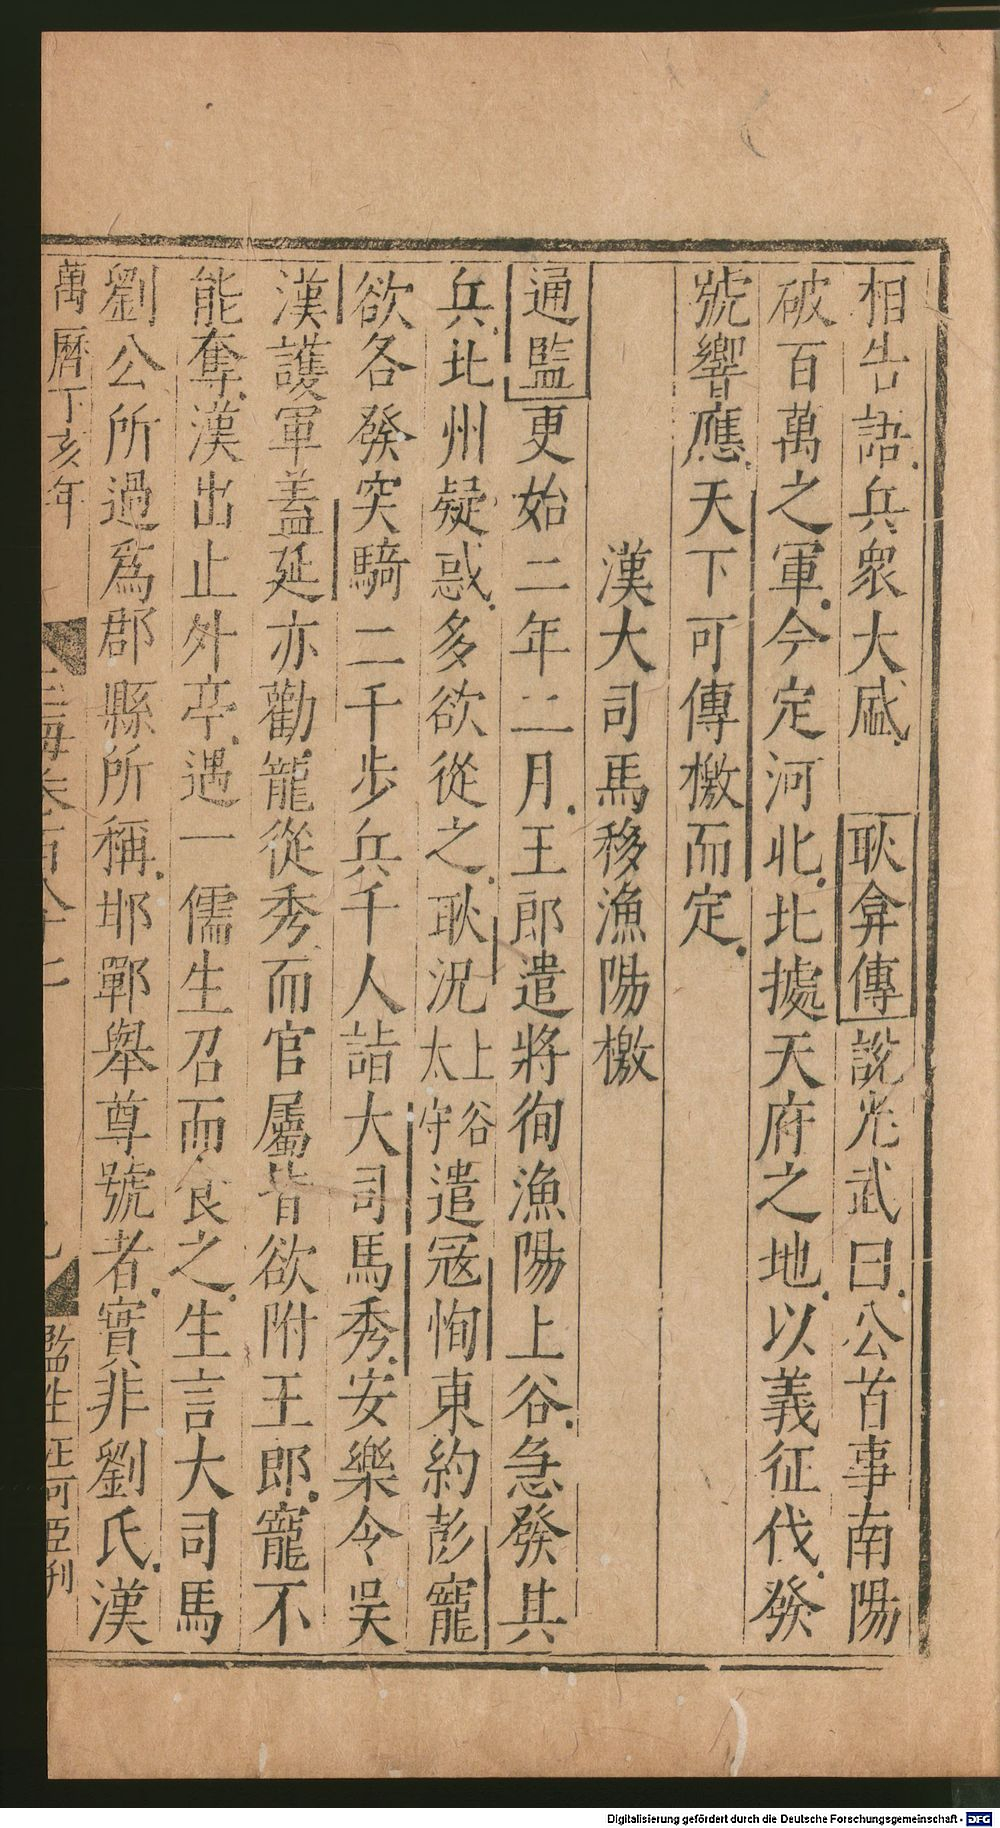 相告語兵衆大盛　耿弇傳說光武曰公首事南陽
破百萬之軍今定河北北據天府之地以義征伐發
號響應天下可傳檄而定
漢大司馬移漁陽檄
通監更始二年二月王郎遣將徇漁陽上谷急發其
兵北州疑惑多欲從之耿況上谷太守遣寇恂東約彭寵
欲各發突騎二千步兵千人詣大司馬秀安樂令吳
漢護軍蓋延亦勸寵從秀而官屬皆欲附王郎寵不
能奪漢出止外亭遇一儒生召而食之生言大司馬
劉公所過爲郡縣所稱邯鄲舉尊號者實非劉氏漢
萬曆丁亥年
玉海卷百八十七
監生汪可臣刊
Digitalisierung gefördert durch die Deutsche Forschungsgemeinschaft - DFG